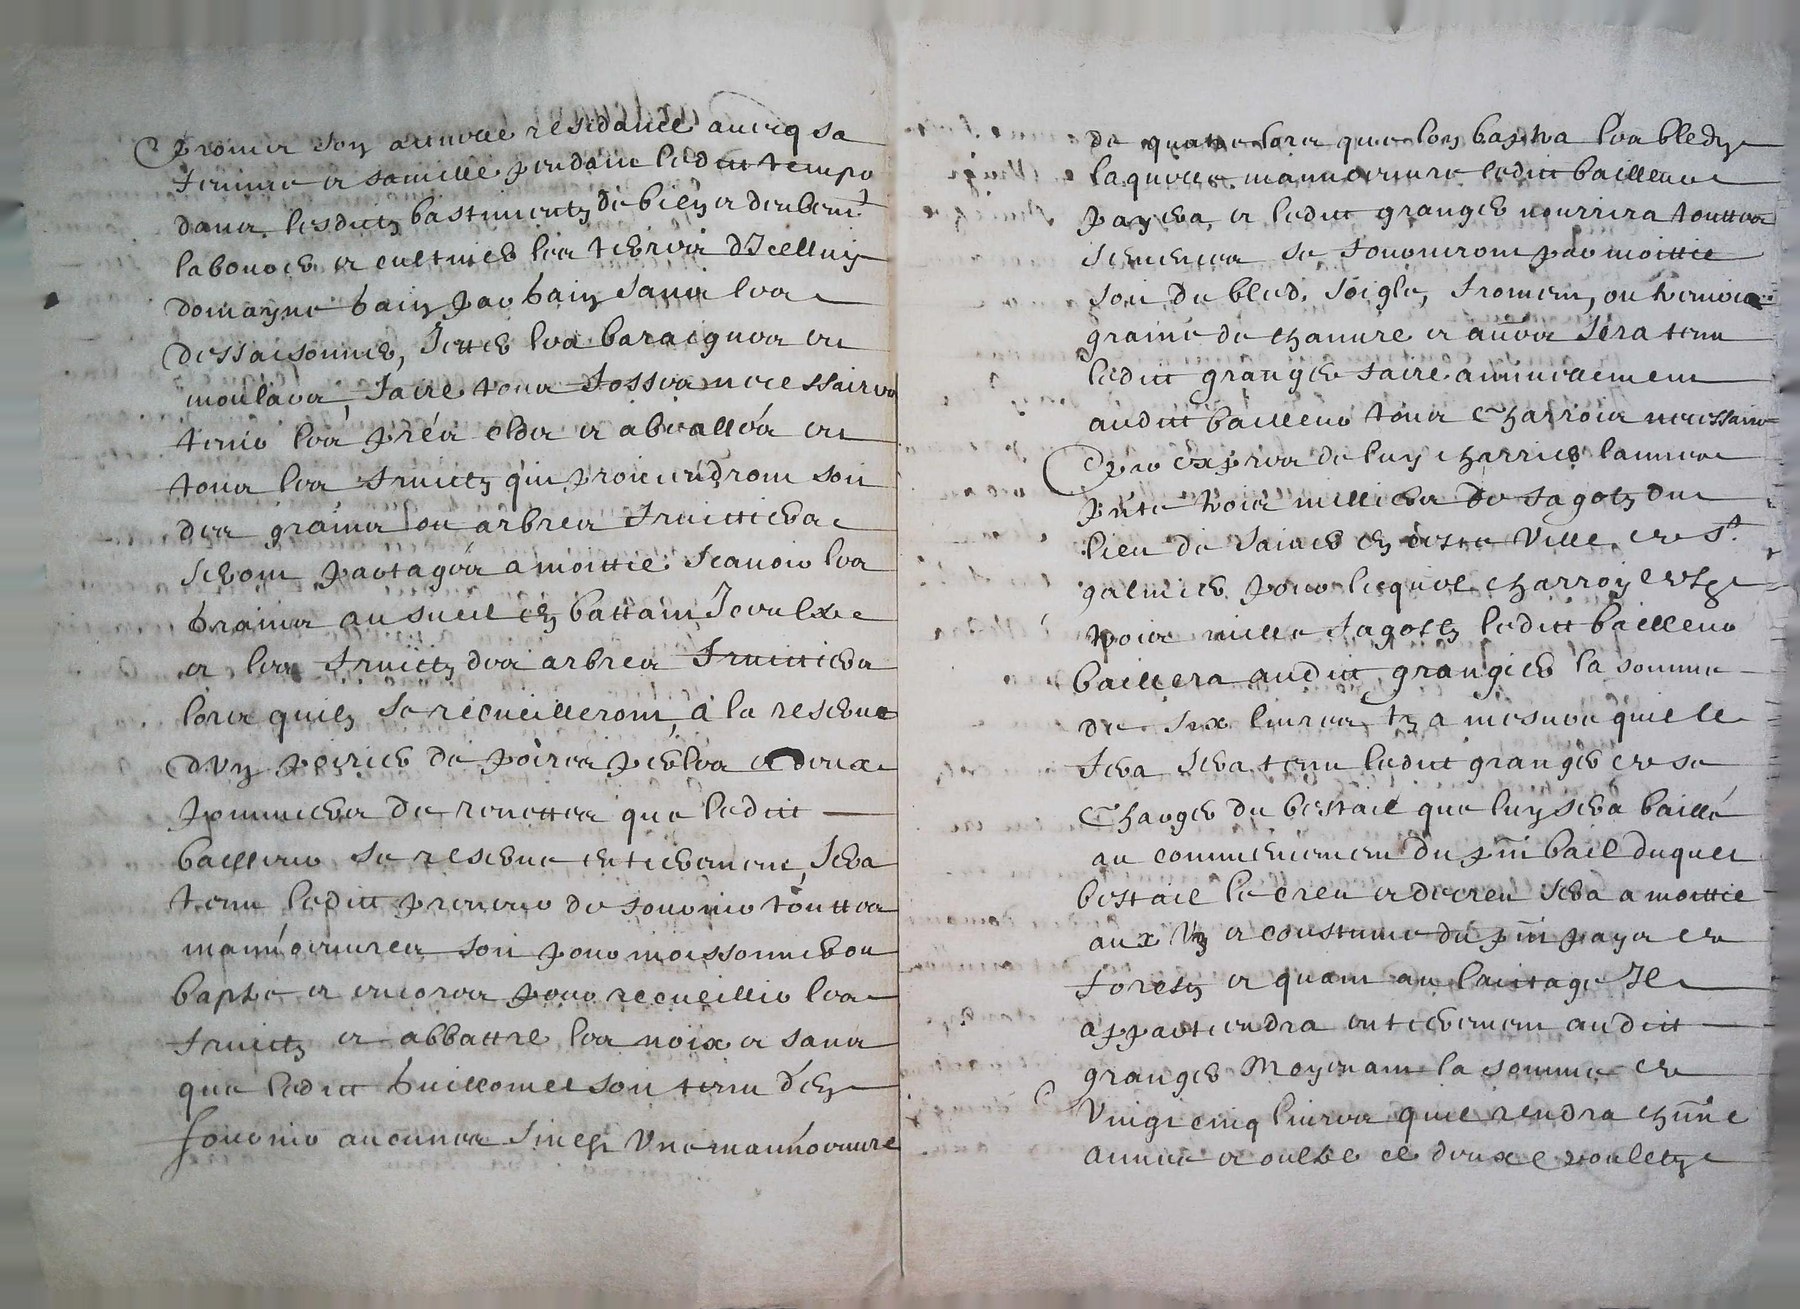 promet son actuelle residance avecq sa
femme et famille pendant ledict temps
dans lesdicts bastiments de bien et deubem.t
labourer et cultiver les terres d'Icelluy
domayne bain par bain sans les
dessaisonner, Jetter les baracques en
moulavet, faire tous fossez necessaires
tenir les prés clos et abealléz en
tous les fruicts qui proviendront soit
des grains ou arbres fruittiers
seront partagéz a moittie. Scavoir les
grains au sueil en battant Iceulx
et les fruicts des arbres fruittiers
lors quils se recueilleront, à la reserve
d'un poirier de poires perles et deux
pommiers de renettes que ledict
bailleur se reserve entierement, sera
tenu ledict preneur de fournir touttes
mannœuvres soit pour moissonner ou
bapttre et encores pour recueillir les
fruicts et abbattre les noix et sans
que ledict Guillomet soit tenu d'en
fournir aucunes sinon une mannœuvre
de quatre lors que lon bapttra les bledz
laquelle mannœuvre ledict bailleur
payera, et ledict granger nourrira touttes
semences se fourniront par moittie
soit de bled, soigle, froment, ou tremois
graine de chanvre et autres sera tenu
ledict granger faire annuellement
audict bailleur tous charrois necessaires
et par expres de luy charrier lannee
pn̄te trois milliers de fagots du
lieu de en ceste ville de S.t
galmier pour lequel charroy desdz
trois mille fagotts ledict bailleur
baillera audict granger la somme
de six livres tz a mesure quil le
fera sera tenu ledict granger de se
charger du bestail que luy sera baillé
au commencement du pn̄t bail duquel
bestail le creu et decreu sera a moittie
aux uz et coustume du pn̄t pays de
forestz et quant au laictage Il
appartiendra entierement audict
granger moyenant la somme de
vingt cinq livres quil rendra chun̄e
annee et oultre ce deux pouletz